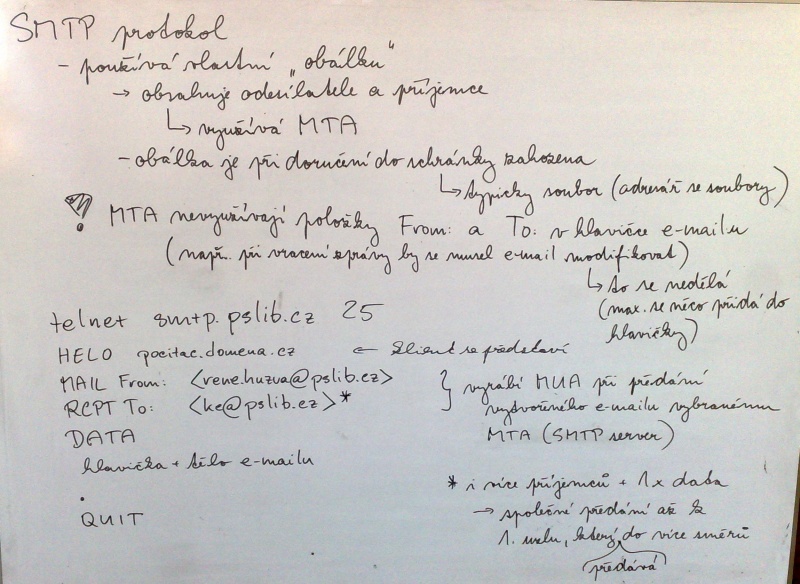 SMTP protokol
- používá vlastní „obálku"
→ obsahuje odesílatele a příjemce
↳ využívá MTA
- obálka je při doručení do schránky zahozena
↳ typicky soubor (adresář se soubory)
! MTA nevyužívají položky From: a To: v hlavičce e-mailu
(např. při vracení zprávy by se musel e-mail modifikovat)
↳ to se nedělá
(max. se něco přidá do
hlavičky)
telnet smtp.pslib.cz 25
HELO pocitac.domena.cz ← klient se představí
MAIL From: <rene.huzva@pslib.cz>
RCPT To: <ke@pslib.cz>*
} vyrábí MUA při předání
vytvořeného e-mailu vybranému
MTA (SMTP server)
DATA
hlavička + tělo e-mailu
.
QUIT
* i více příjemců + 1x data
→ společné předání až k
1. uzlu, který do více směrů
předává